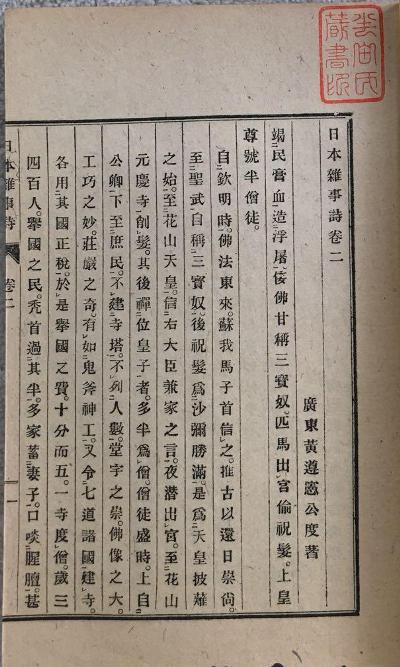 日本雜事詩卷二
廣東黃遵憲公度著
竭民膏血造浮屠。佞佛甘稱三寶奴。匹馬出宮偷祝髮。上皇
尊號半僧徒。
自欽明時。佛法東來。蘇我馬子首信之。推古以還日崇尙。
至聖武自稱三寶奴。後祝髮爲沙彌勝滿。是爲天皇披薙
之始。至花山天皇。信右大臣兼家之言。夜潛出宮。至花山
元慶寺創髮。其後禪位皇子者。多半爲僧。僧徒盛時。上自
公卿下至庶民。不建寺塔。不列人數。堂宇之崇。佛像之大。
工巧之妙。莊嚴之奇。有如鬼斧神工。又令七道諸國建寺。
各用其國正稅。於是擧國之費。十分而五。一寺度僧。歲三
四百人。擧國之民。禿首過其半。多家蓄妻子。口啖腥膻。甚
日本雜事詩 卷二 一
藏書印